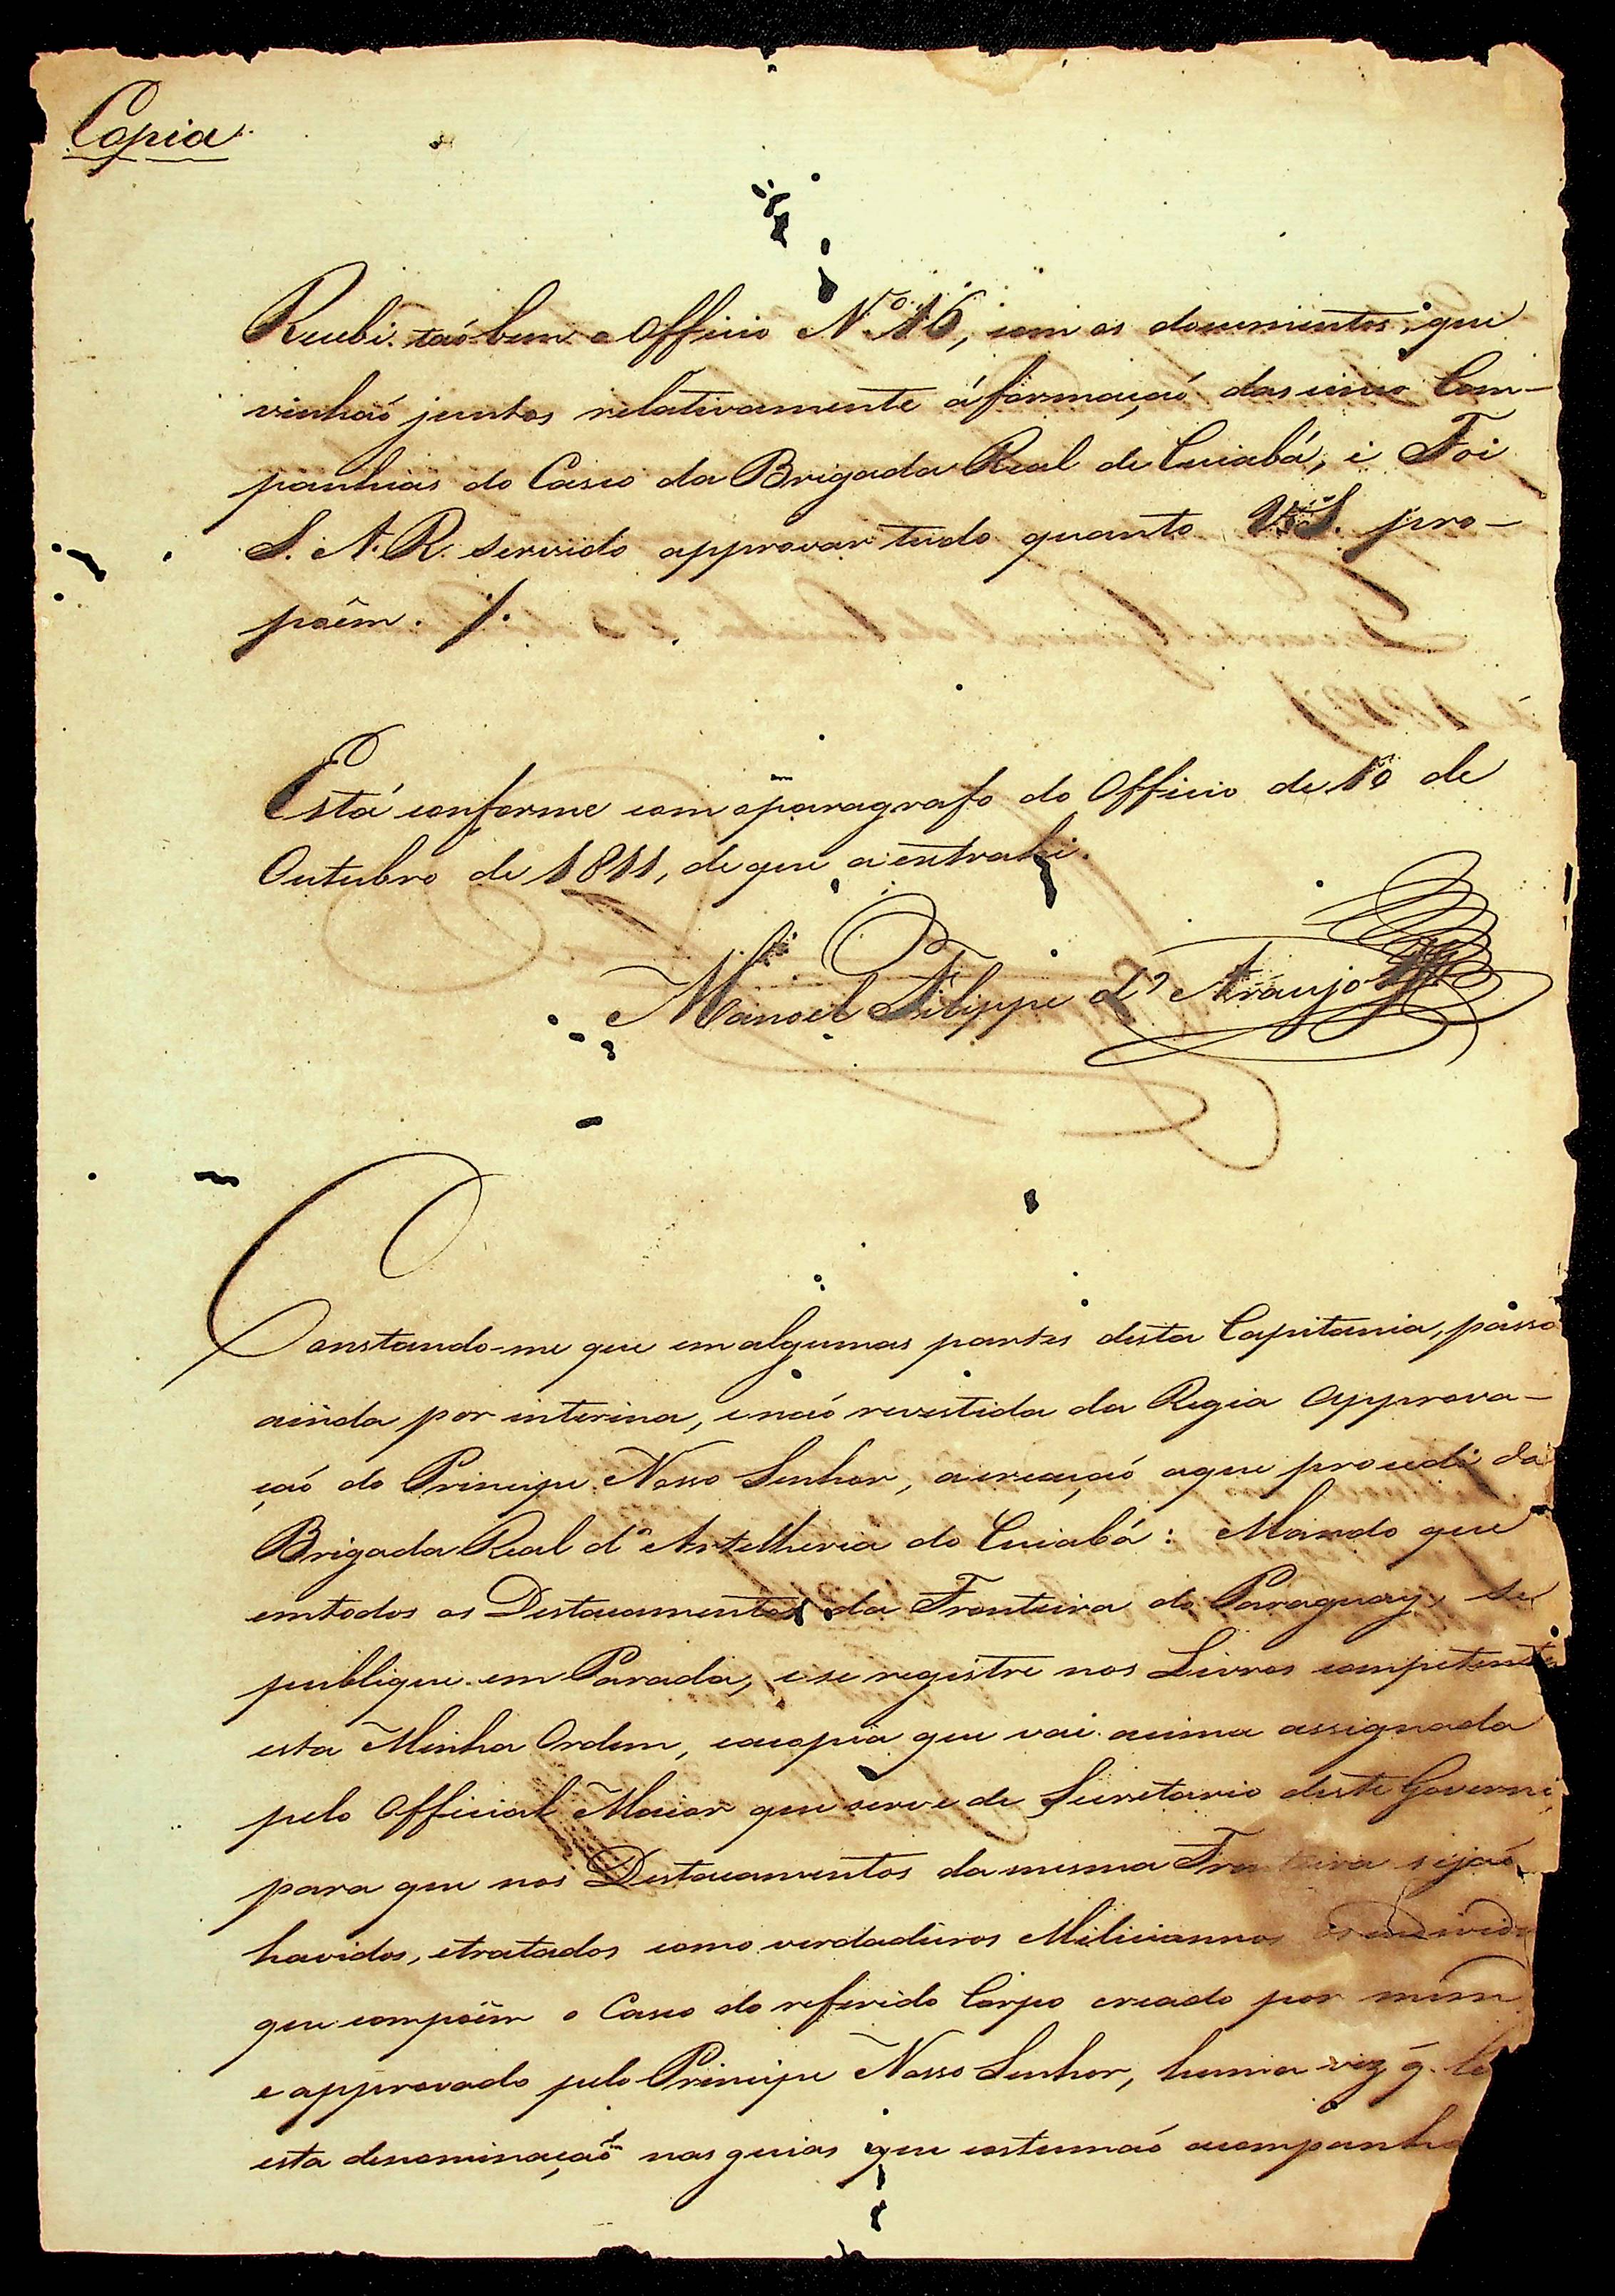 Copia
Recebi taõ bem o Officio Nº 16, com os documentos, que
vinhaõ juntos relativamente á formaçaõ das cinco Com-
panhias do Casco da Brigada Real de Cuiabá, e Foi
S. A. R. servido approvar tudo quanto V. S. pro-
põem. /.
Está conforme com o paragrafo do Officio de 10 de
Outubro de 1811, de que a extrahi.
Manoel Filippe d' Araujo
Constando-me que em algumas partes desta Capitania, passa
ainda por interina, e naõ revestida da Regia Approva-
çaõ do Principe Nosso Senhor, a creaçaõ a que procedi da
Brigada Real d' Artelheria do Cuiabá: Mando que
em todos os Destacamentos da Fronteira do Paraguay se
publique em Parada, e se registre nos Livros competentes
esta Minha Ordem, e a copia que vai acima assignada
pelo Official Maior que serve de Secretario deste Governo,
para que nos Destacamentos da mesma Fronteira sejaõ
havidos, e tratados como verdadeiros Miliciannos os individu
que compõem o Casco do referido Corpo creado por mim
e approvado pelo Principe Nosso Senhor, huma vez q̃ te
esta denominaçaõ nas guias que costumaõ acompanha